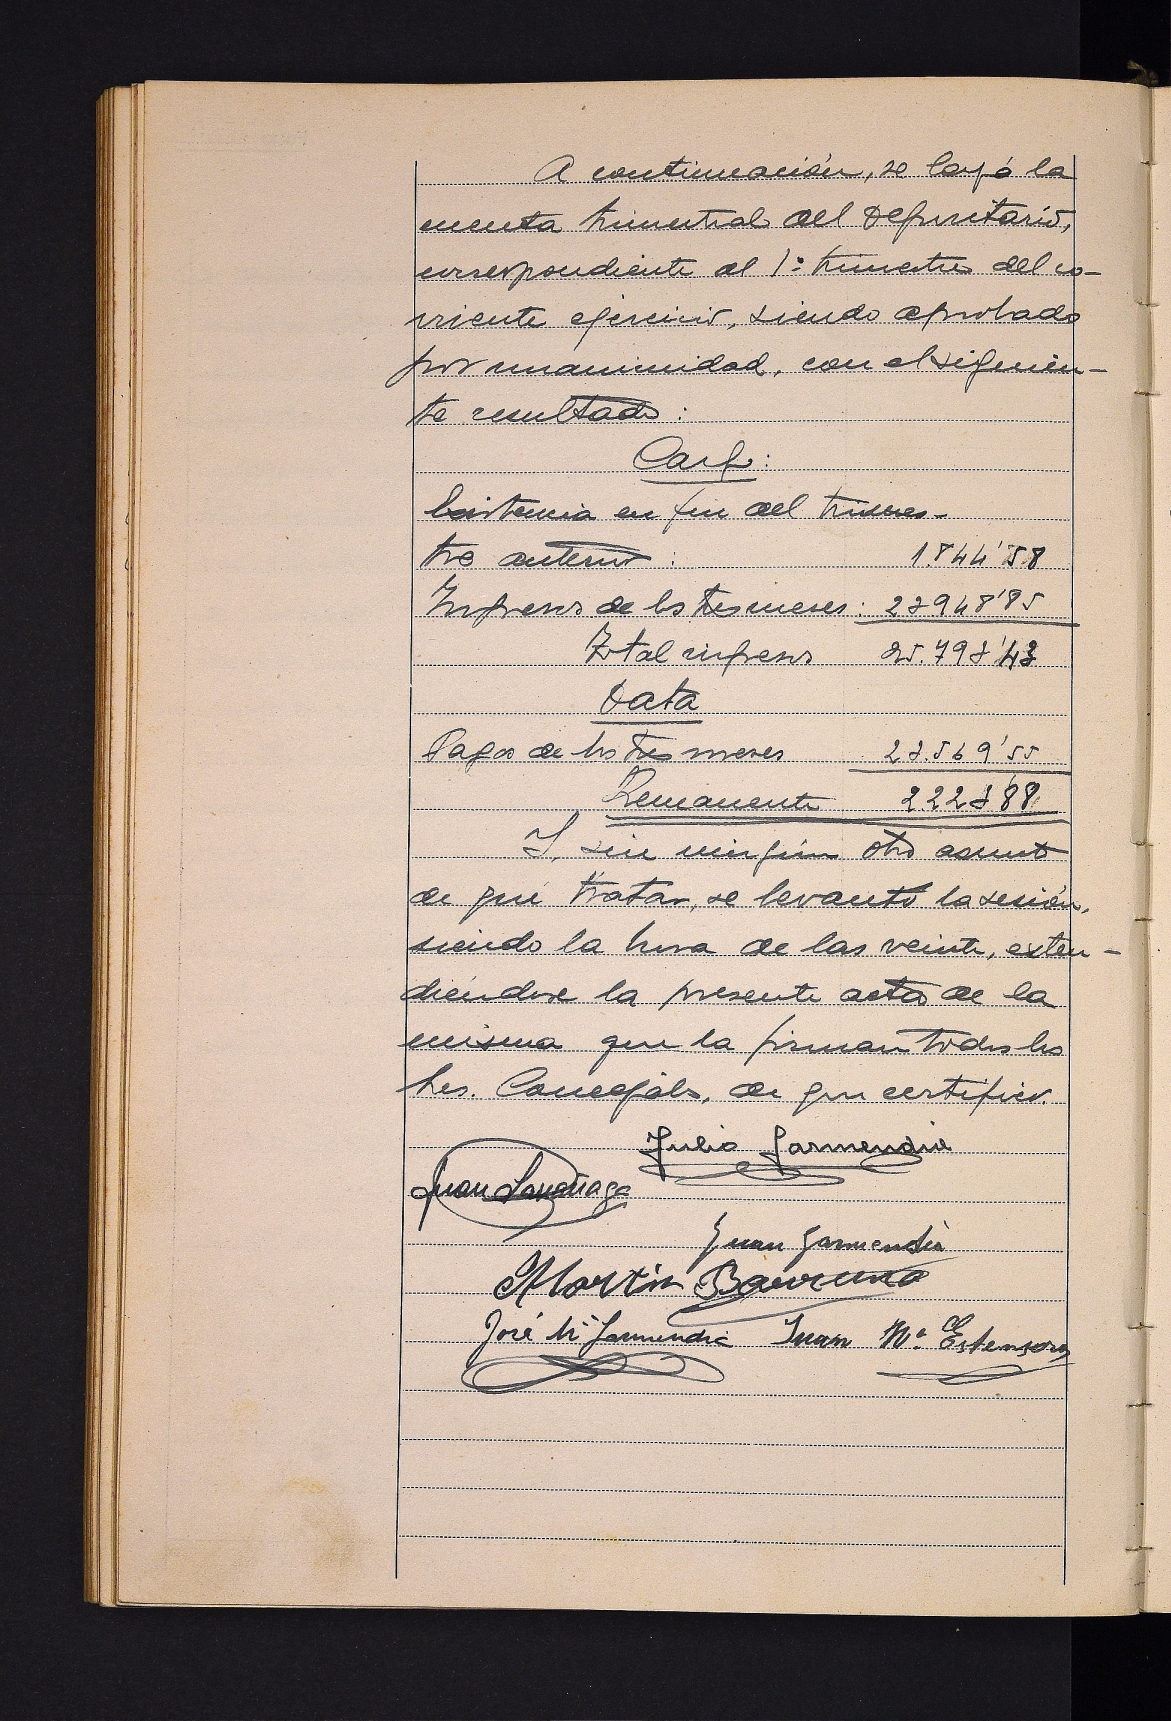 A continuación, se leyó la
cuenta trimestral del Depositario,
correspondiente al 1º trimestre del co-
rriente ejercicio, siendo aprobado
por unanimidad, con el siguien-
te resultado:
Cargo:
Existencia en fin del trimes-
tre anterior: 1.844'58
Ingresos de los tres meses: 23948'85
Total ingresos 25.793'43
Data
Pagos de los tres meses 23.569'55
Remanente 2223'88
Y, sin ningún otro asunto
de que tratar, se levantó la sesión,
siendo la hora de las veinte, exten-
diéndose la presente acta de la
misma que la firman todos los
Sres. Concejales, de que certifico.
Julio Garmendia
Juan
Juan Garmendia
Martin
José Mª Garmendia Juan Mª Estensoro